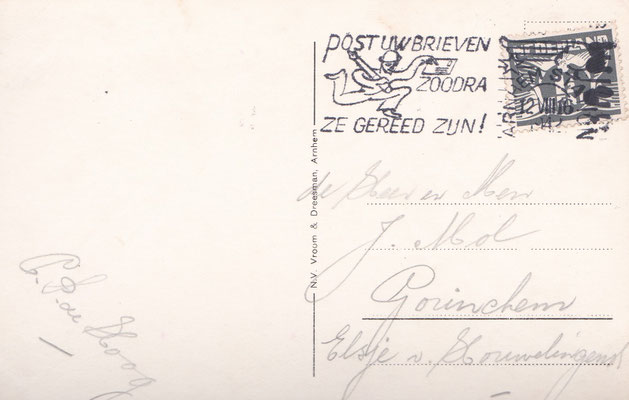 POST UW BRIEVEN
ZOODRA
ZE GEREED ZIJN!
ARNHEM
12 VIII 16
194
N.V. Vroom & Dreesman, Arnhem
de Heer en Mevr
J. Mol
Gorinchem
Elsje v. Houwelingenst
C. P. de Hoog